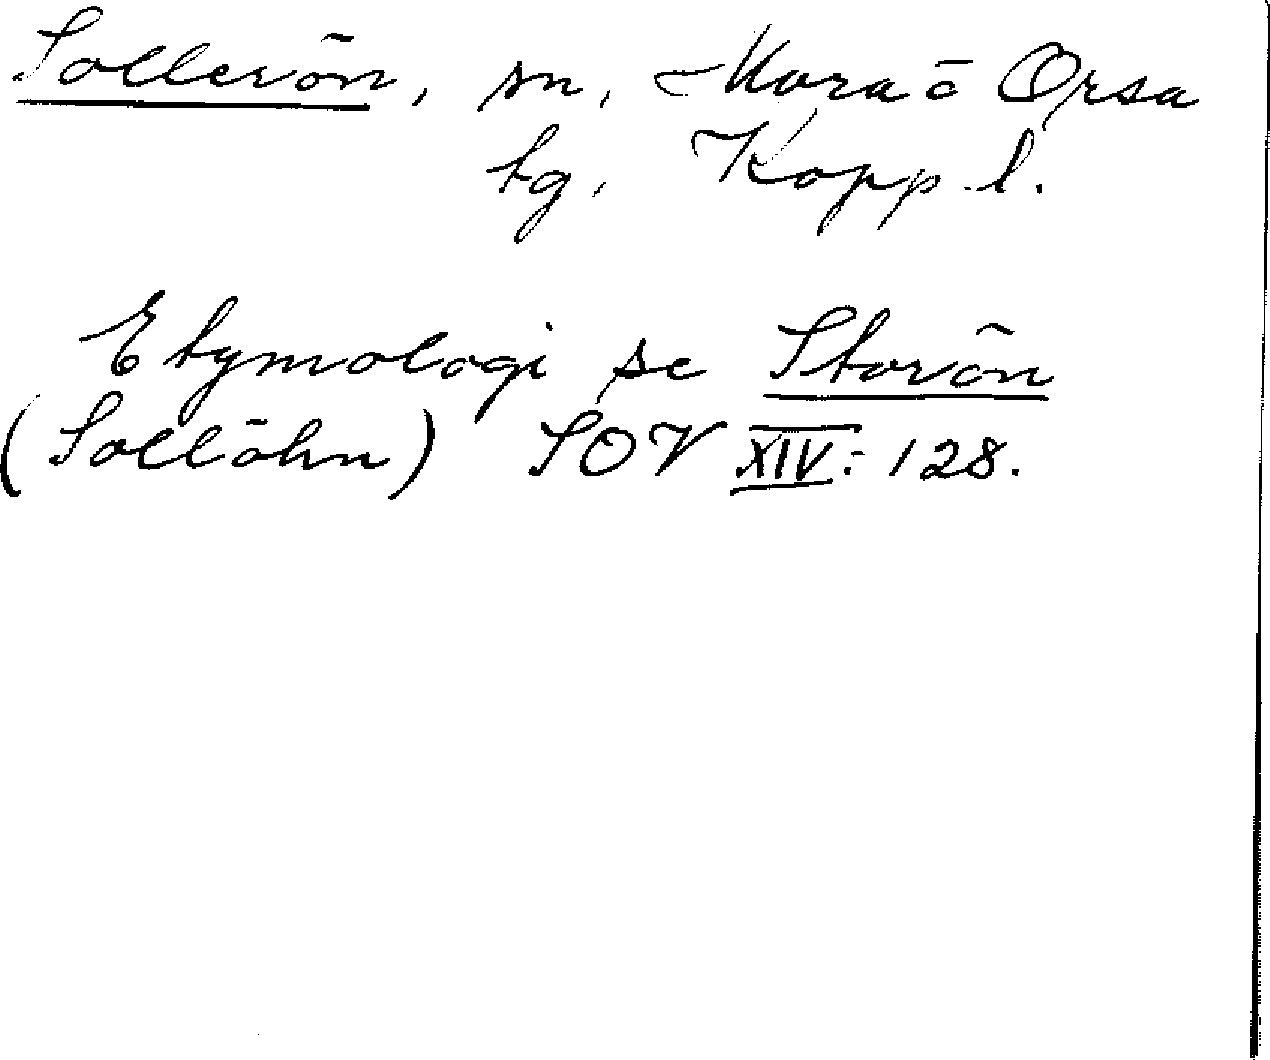 Sollerön, sn, Mora o Orsa
tg, Kopp. l.
Etymologi se Storön
(Sollöhn) SOV XIV: 128.